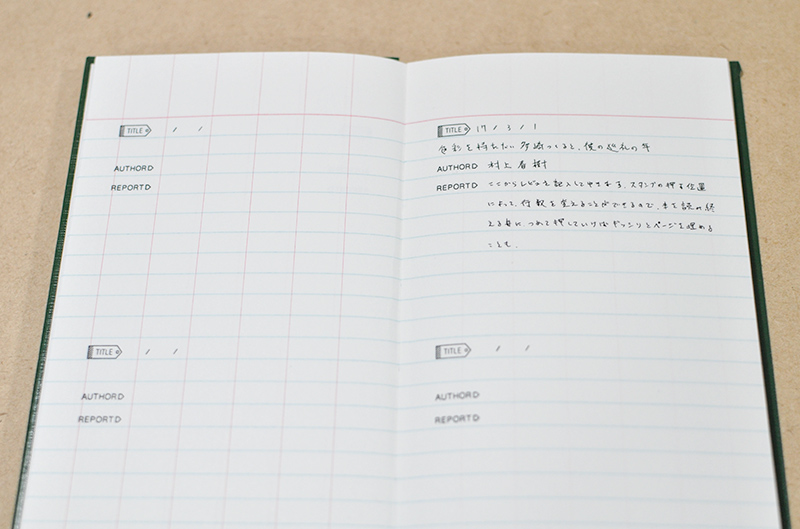 TITLE / /
AUTHOR
REPORT
TITLE / /
AUTHOR
REPORT
TITLE 17 / 3 / 1
色彩を持たない多崎つくると、彼の巡礼の年
AUTHOR 村上春樹
REPORT ここからレビューを記入して出来ます。スタンプの押す位置
によって、行数を変えることができるので、本を読み終
える毎に、つめて押していけばギッシリとページを埋める
ことも。
TITLE / /
AUTHOR
REPORT